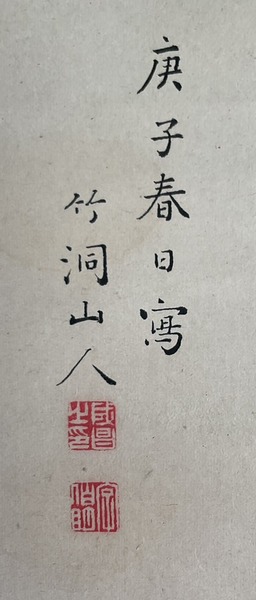 庚子春日寫
竹洞山人